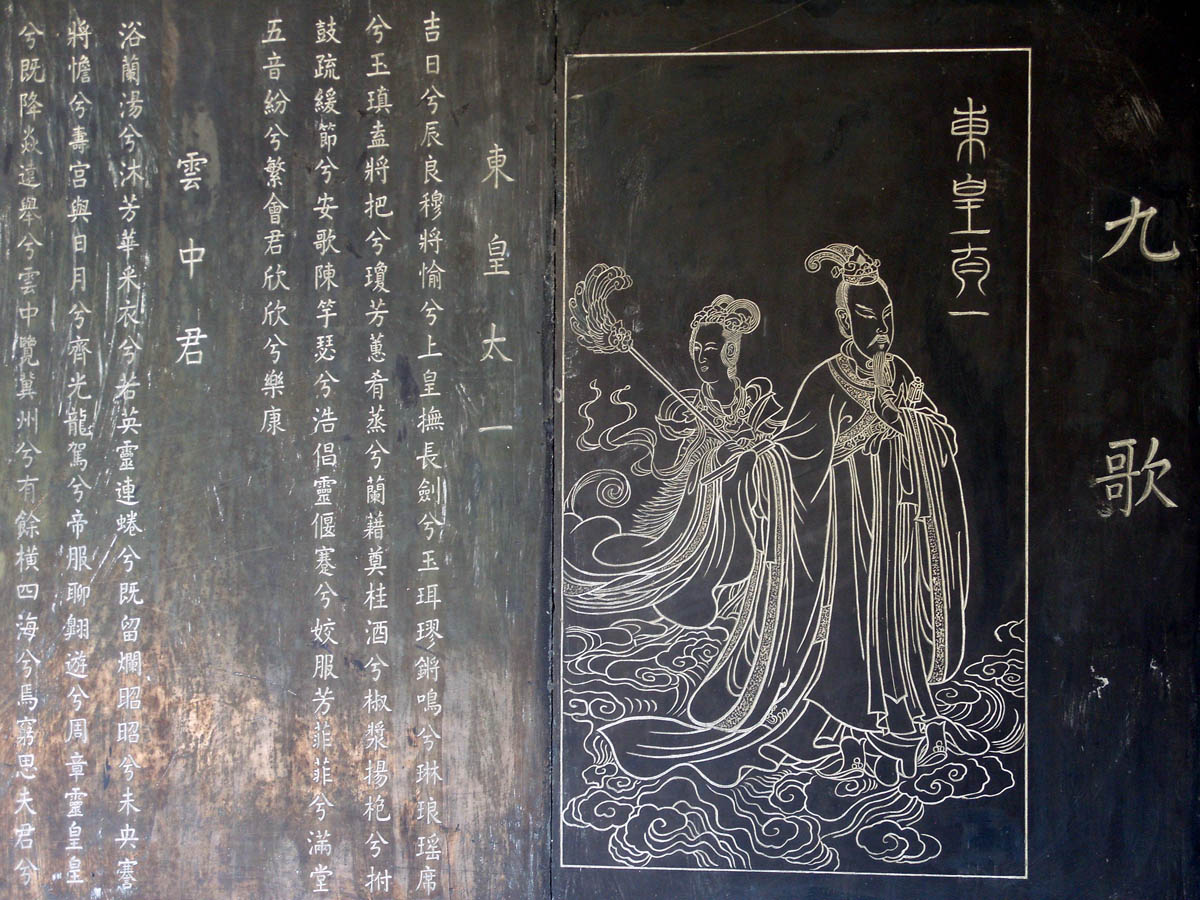 九歌
東皇太一
東皇太一
吉日兮辰良穆將愉兮上皇撫長劍兮玉珥璆鏘鳴兮琳琅瑤席
兮玉瑱盍將把兮瓊芳蕙肴蒸兮蘭藉奠桂酒兮椒漿揚枹兮拊
鼓疏緩節兮安歌陳竽瑟兮浩倡靈偃蹇兮姣服芳菲菲兮滿堂
五音紛兮繁會君欣欣兮樂康
雲中君
浴蘭湯兮沐芳華采衣兮若英靈連蜷兮既留爛昭昭兮未央謇
將憺兮壽宮與日月兮齊光龍駕兮帝服聊翱遊兮周章靈皇皇
兮既降焱遠舉兮雲中覽冀州兮有餘橫四海兮焉窮思夫君兮